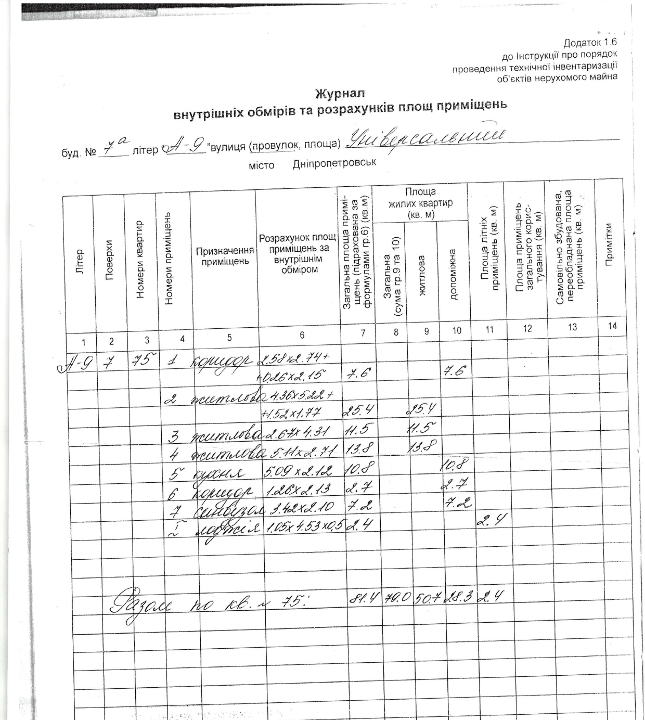 Додаток 1.6
до Інструкції про порядок
проведення технічної інвентаризації
об'єктів нерухомого майна
Журнал
внутрішніх обмірів та розрахунків площ приміщень
буд. № 7а літер "А-9" вулиця (провулок, площа) Універсальний
місто Дніпропетровськ
Літер
Поверхи
Номери квартир
Номери приміщень
Призначення приміщень
Розрахунок площ приміщень за внутрішнім обміром
Загальна площа приміщень (підрахована за формулами гр.6) (кв.м)
Площа жилих квартир (кв. м)
Загальна (сума гр.9 та 10)
житлова
допоміжна
Площа літніх приміщень (кв. м)
Площа приміщень загального користування (кв. м)
Самовільно збудована, переобладнана площа приміщень (кв. м)
Примітки
1 2 3 4 5 6 7 8 9 10 11 12 13 14
А-9 7 75 1 коридор 2.58x2.74+
+0.26x2.15 7.6 7.6
2 житлова 4.36x5.22+
+1.52x1.77 25.4 25.4
3 житлова 2.67x4.31 11.5 11.5
4 житлова 5.11x2.71 13.8 13.8
5 кухня 5.09x2.12 10.8 10.8
6 коридор 1.26x2.13 2.7 2.7
7 санвузол 3.42x2.10 7.2 7.2
I лоджія 1.05x4.53x0,5 2.4 2.4
Разом по кв. № 75: 81.4 79.0 50.7 28.3 2.4